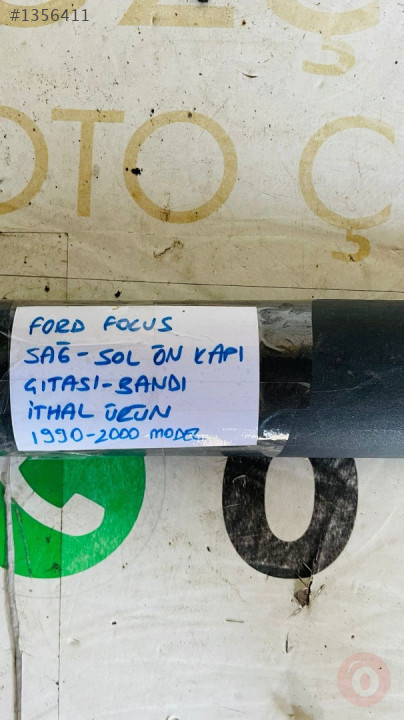 #1356411
OTO Ç
FORD FOCUS
SAĞ-SOL ÖN KAPI
ÇITASI-BANDI
İTHAL ÜRÜN
1990-2000 MODEL
O